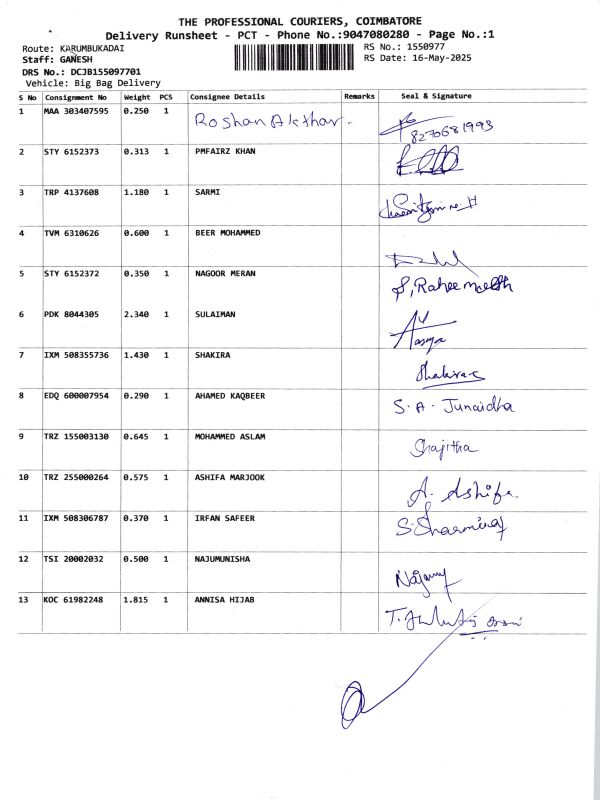 THE PROFESSIONAL COURIERS, COIMBATORE
Delivery Runsheet - PCT - Phone No.:9047080280 - Page No.:1
Route: KARUMBUKADAI
RS No.: 1550977
Staff: GANESH
RS Date: 16-May-2025
DRS No.: DCJB155097701
Vehicle: Big Bag Delivery
S No Consignment No Weight PCS Consignee Details Remarks Seal & Signature
1 MAA 303407595 0.250 1 Roshan Akthar.
8270681993
2 STY 6152373 0.313 1 PMFAIRZ KHAN
3 TRP 4137608 1.180 1 SARMI
4 TVM 6310626 0.600 1 BEER MOHAMMED
5 STY 6152372 0.350 1 NAGOOR MERAN
S, Raheemath
6 PDK 8044305 2.340 1 SULAIMAN
7 IXM 508355736 1.430 1 SHAKIRA
Shakira
8 EDQ 600007954 0.290 1 AHAMED KAQBEER
S. A. Junaidha
9 TRZ 155003130 0.645 1 MOHAMMED ASLAM
Shajitha
10 TRZ 255000264 0.575 1 ASHIFA MARJOOK
A. Ashifa.
11 IXM 508306787 0.370 1 IRFAN SAFEER
12 TSI 20002032 0.500 1 NAJUMUNISHA
13 KOC 61982248 1.815 1 ANNISA HIJAB